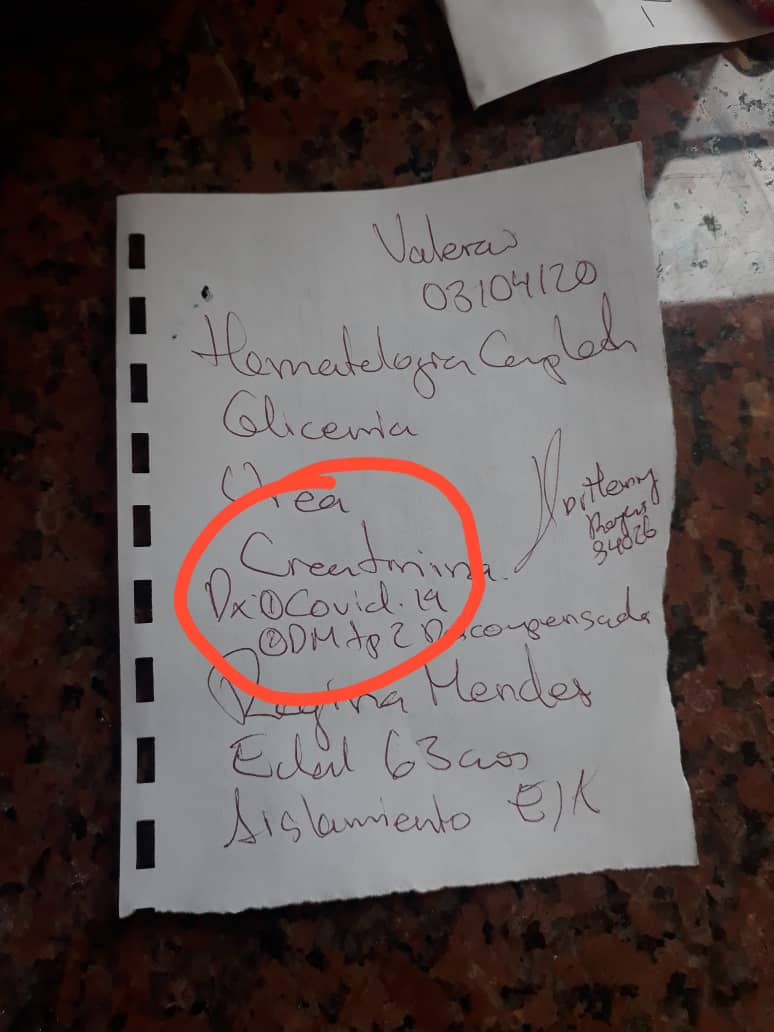 Valera
03/04/20
Hematologia
Glicemia
Urea
Creatinina.
Dx: ① Covid. 19
② DM tp 2 Descompensada
Regina Mendes
Edad 63 años
Aislamiento
34026